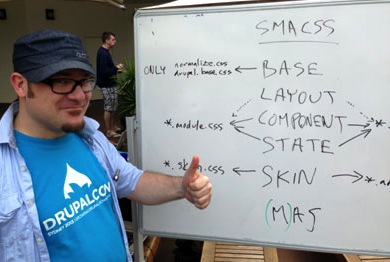 SMACSS
ONLY normalize.css
drupal.base.css
BASE
LAYOUT
*.module.css
COMPONENT
*
STATE
*.skin.css
SKIN
(M)AS
DRUPALCON